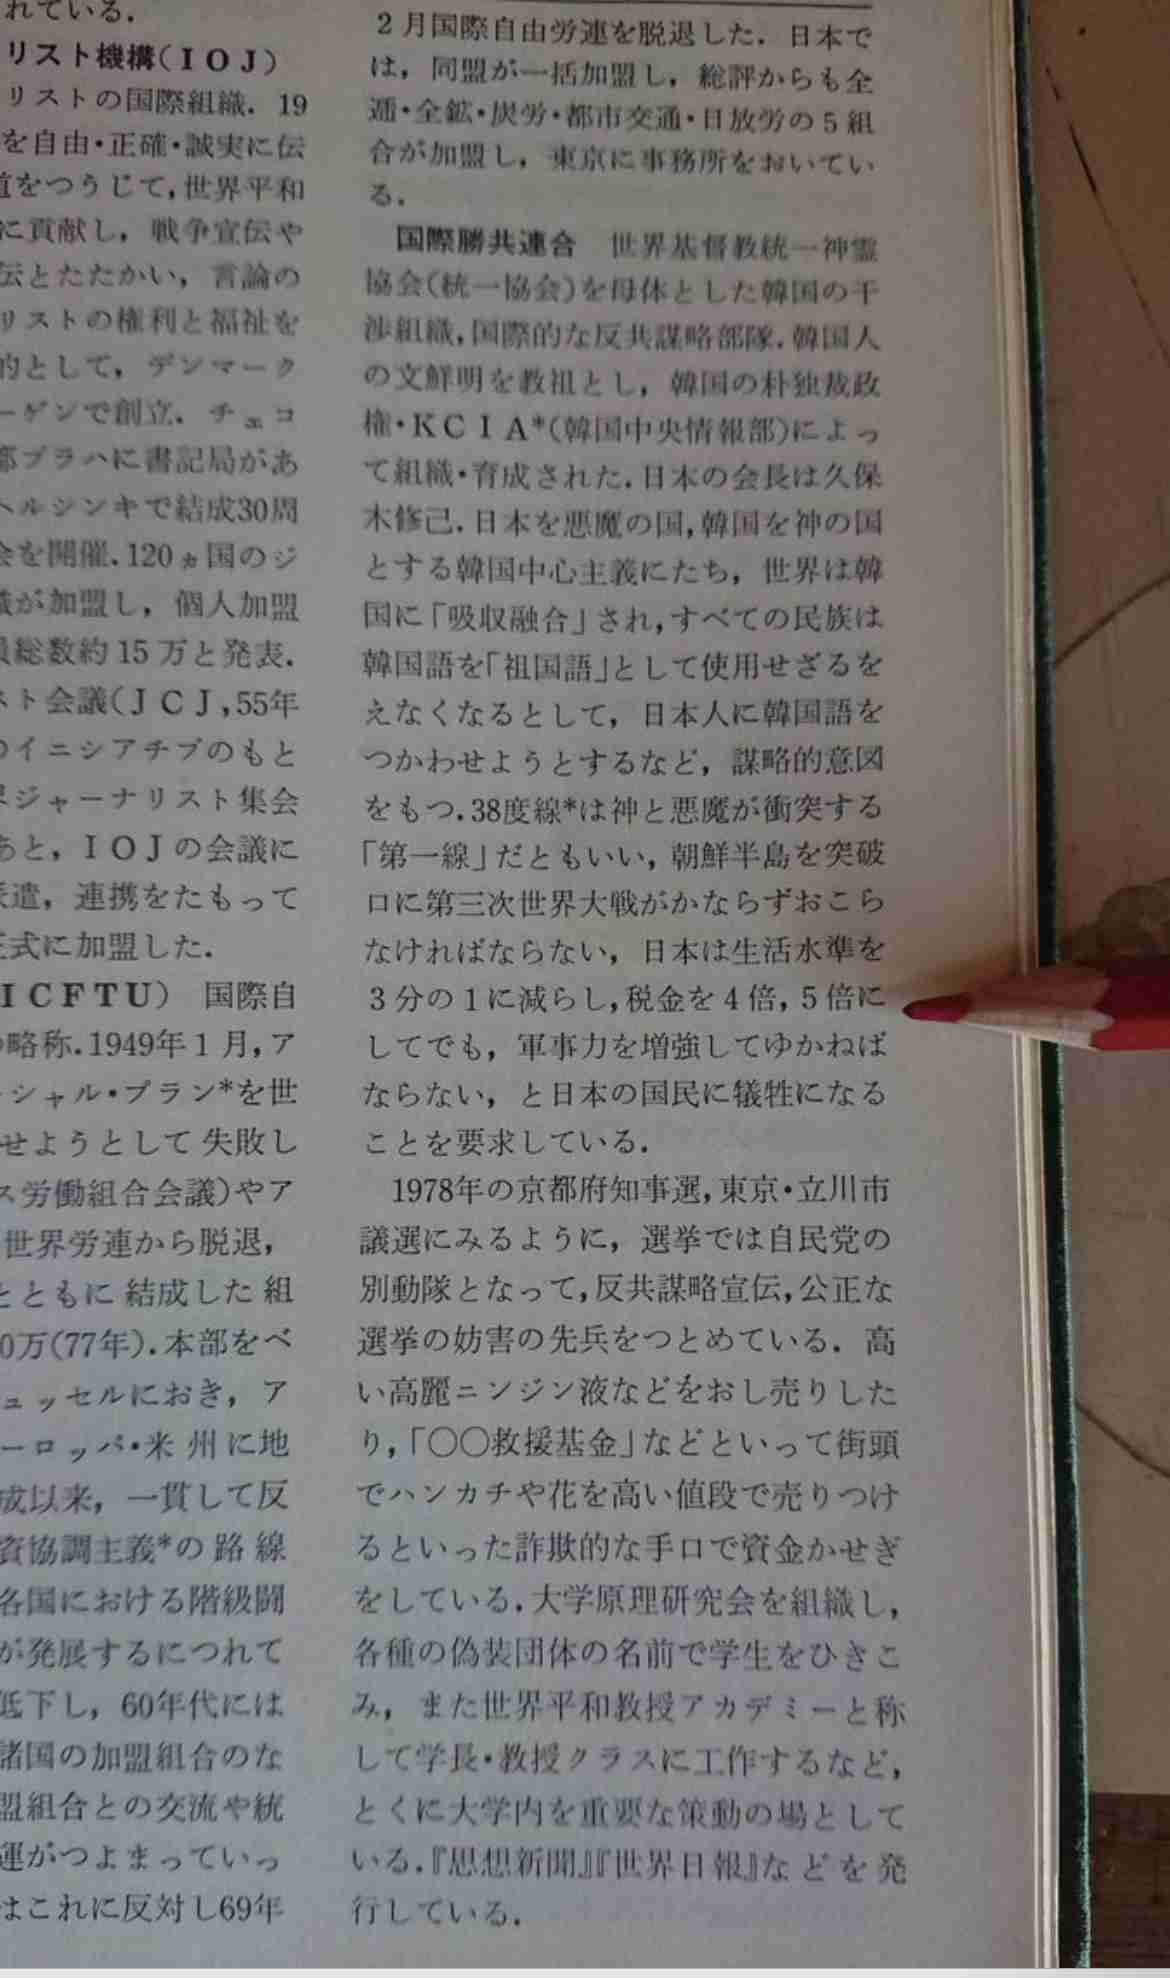 れている．
リスト機構（ＩＯＪ）
リストの国際組織．19
を自由・正確・誠実に伝
道をつうじて，世界平和
に貢献し，戦争宣伝や
伝とたたかい，言論の
リストの権利と福祉を
的として，デンマーク
ーゲンで創立．チェコ
部プラハに書記局があ
ヘルシンキで結成30周
会を開催．120ヵ国のジ
織が加盟し，個人加盟
員総数約15万と発表．
スト会議（ＪＣＪ，55年
のイニシアチブのもと
界ジャーナリスト集会
あと，ＩＯＪの会議に
派遣，連携をたもって
正式に加盟した．
ＩＣＦＴＵ） 国際自
の略称．1949年１月，ア
ーシャル・プラン*を世
せようとして失敗し
ス労働組合会議）やア
世界労連から脱退，
とともに結成した組
0万（77年）．本部をベ
ュッセルにおき，ア
ーロッパ・米州に地
成以来，一貫して反
資協調主義*の路線
各国における階級闘
が発展するにつれて
低下し，60年代には
諸国の加盟組合のな
盟組合との交流や統
運がつよまっていっ
はこれに反対し69年
２月国際自由労連を脱退した．日本で
は，同盟が一括加盟し，総評からも全
逓・全鉱・炭労・都市交通・日放労の５組
合が加盟し，東京に事務所をおいてい
る．
国際勝共連合　世界基督教統一神霊
協会（統一協会）を母体とした韓国の干
渉組織，国際的な反共謀略部隊．韓国人
の文鮮明を教祖とし，韓国の朴独裁政
権・ＫＣＩＡ*（韓国中央情報部）によっ
て組織・育成された．日本の会長は久保
木修己．日本を悪魔の国，韓国を神の国
とする韓国中心主義にたち，世界は韓
国に「吸収融合」され，すべての民族は
韓国語を「祖国語」として使用せざるを
えなくなるとして，日本人に韓国語を
つかわせようとするなど，謀略的意図
をもつ．38度線*は神と悪魔が衝突する
「第一線」だともいい，朝鮮半島を突破
口に第三次世界大戦がかならずおこら
なければならない，日本は生活水準を
３分の１に減らし，税金を４倍，５倍に
してでも，軍事力を増強してゆかねば
ならない，と日本の国民に犠牲になる
ことを要求している．
1978年の京都府知事選，東京・立川市
議選にみるように，選挙では自民党の
別動隊となって，反共謀略宣伝，公正な
選挙の妨害の先兵をつとめている．高
い高麗ニンジン液などをおし売りした
り，「〇〇救援基金」などといって街頭
でハンカチや花を高い値段で売りつけ
るといった詐欺的な手口で資金かせぎ
をしている．大学原理研究会を組織し，
各種の偽装団体の名前で学生をひきこ
み，また世界平和教授アカデミーと称
して学長・教授クラスに工作するなど，
とくに大学内を重要な策動の場として
いる．『思想新聞』『世界日報』などを発
行している．